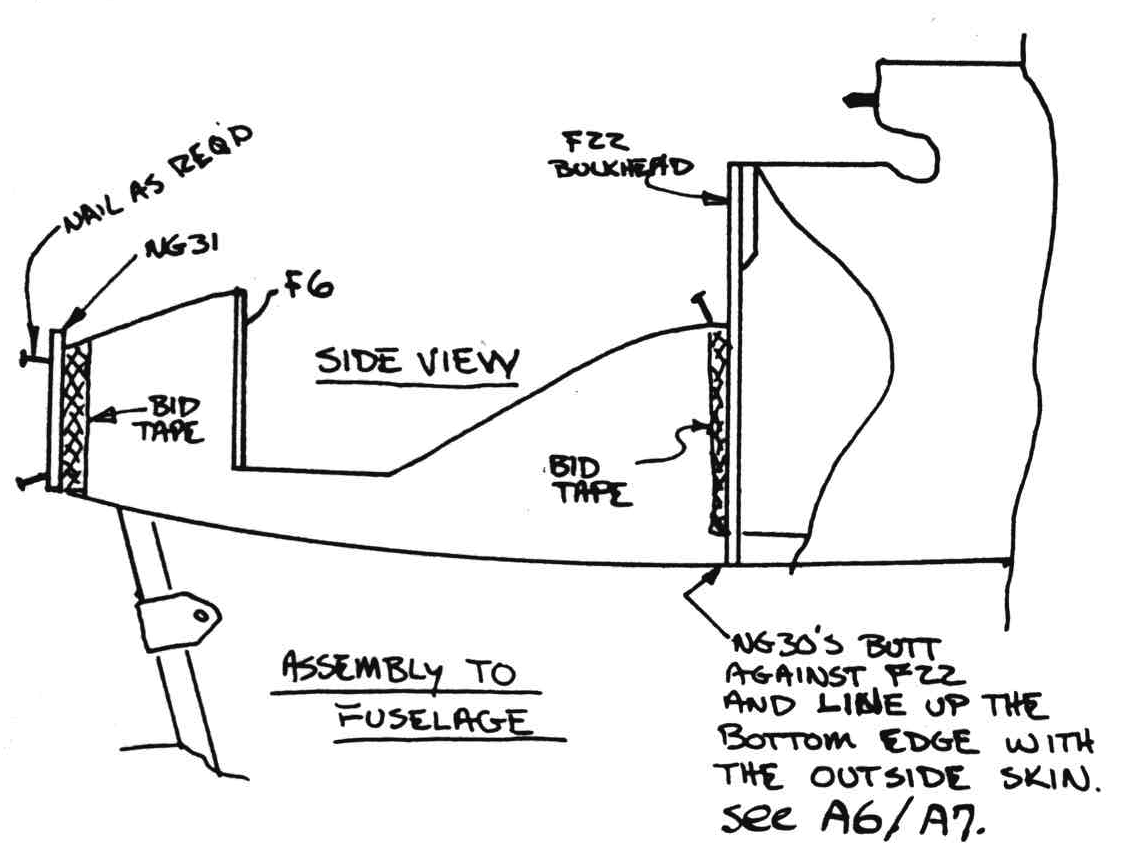 NAIL AS REQ'D
NG31
F6
F22
BULKHEAD
SIDE VIEW
BID
TAPE
BID
TAPE
ASSEMBLY TO
FUSELAGE
NG30'S BUTT
AGAINST F22
AND LINE UP THE
BOTTOM EDGE WITH
THE OUTSIDE SKIN.
See A6/A7.